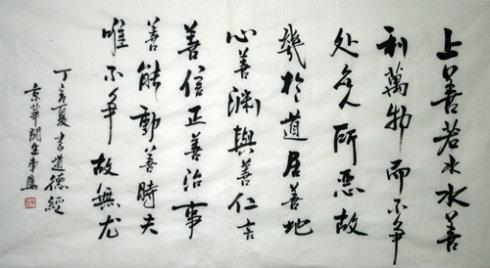 上善若水水善
利萬物而不争
处众人所惡故
幾於道居善地
心善渊與善仁言
善信正善治事
善能動善時夫
唯不争故無尤
丁亥夏書道德經
京華